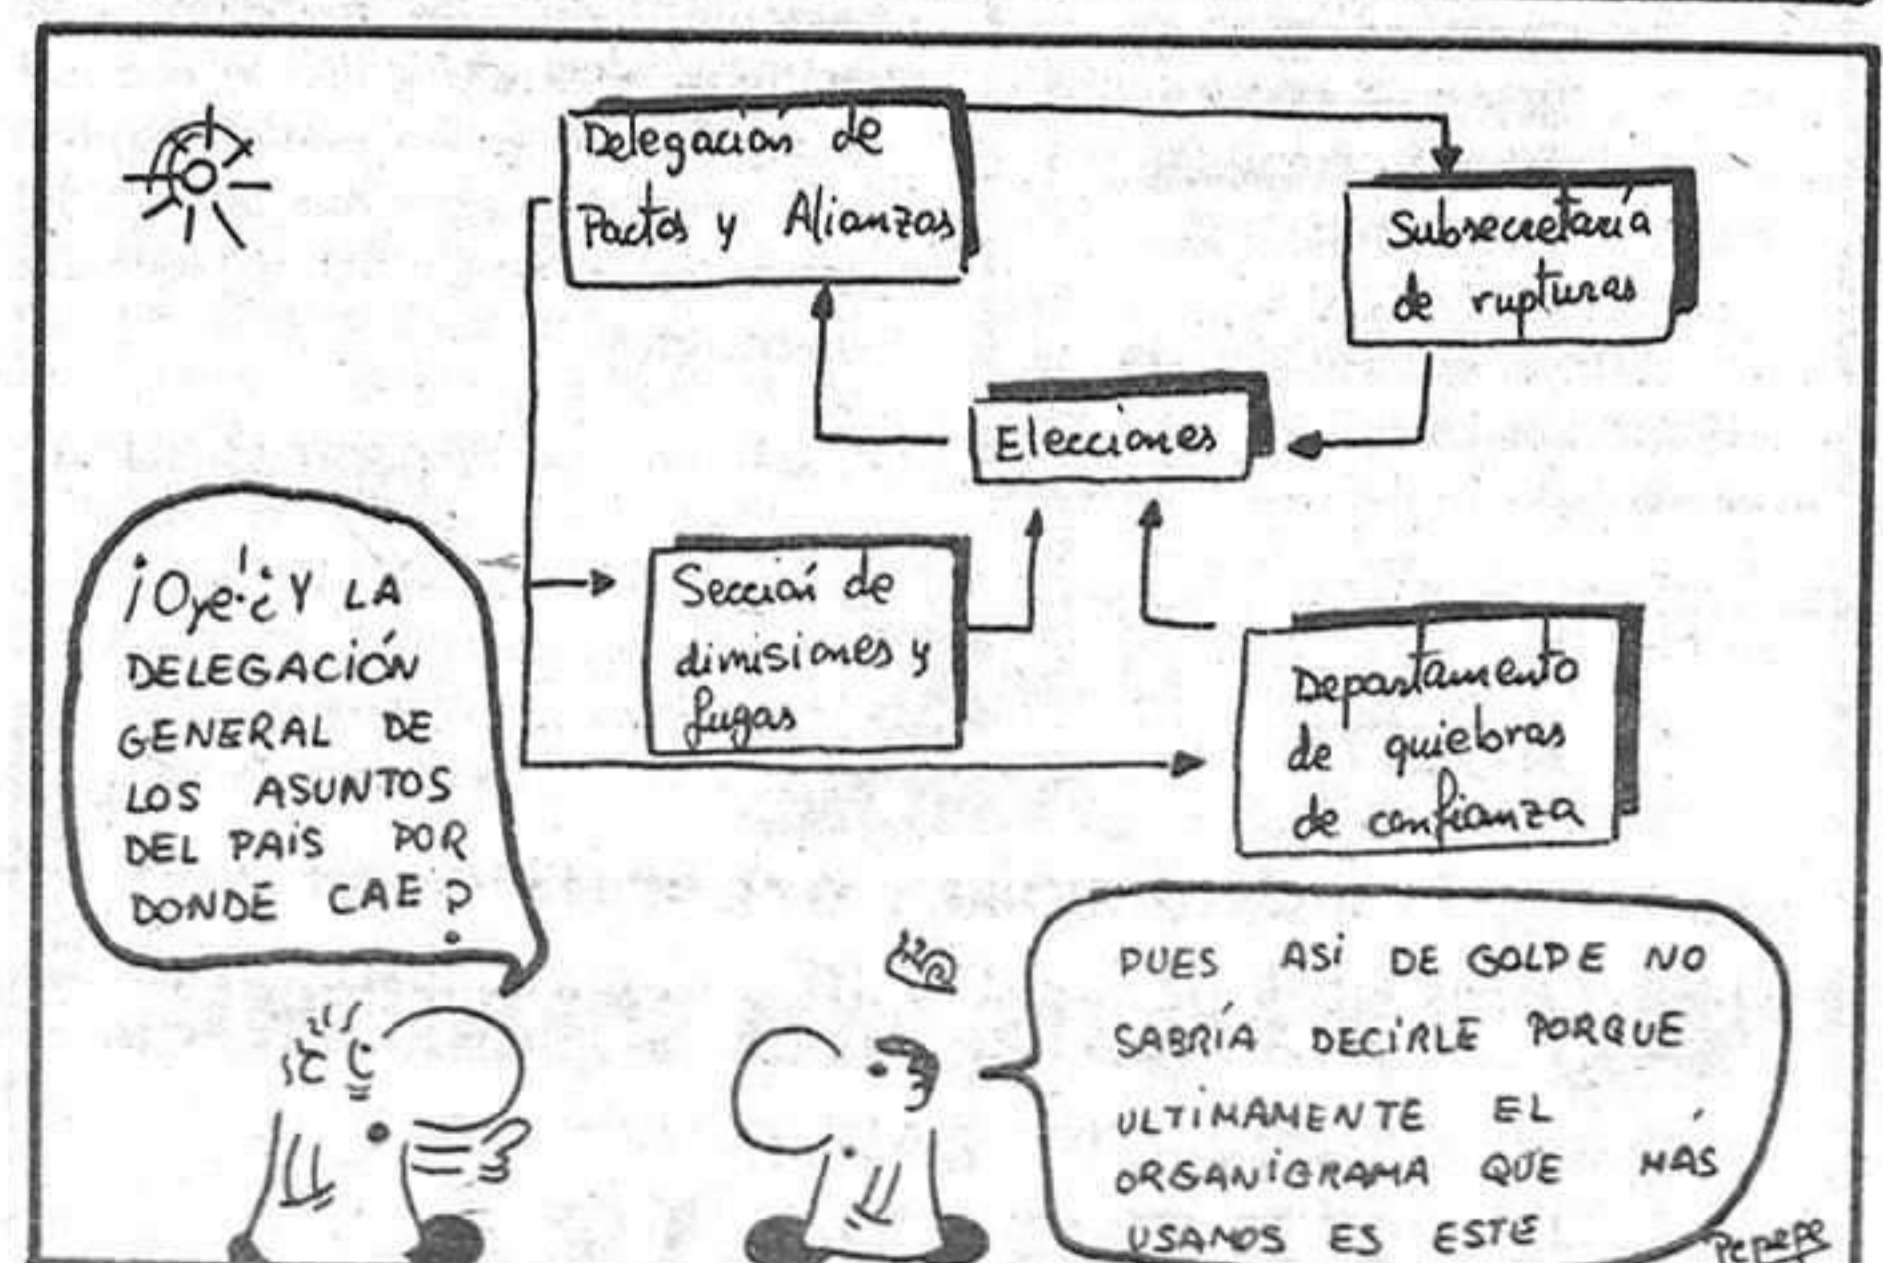 Delegación de
Pactos y Alianzas
Subsecretaría
de rupturas
Elecciones
Sección de
dimisiones y
fugas
Departamento
de quiebras
de confianza
¡Oye! ¿Y LA
DELEGACIÓN
GENERAL DE
LOS ASUNTOS
DEL PAIS POR
DONDE CAE?
PUES ASÍ DE GOLPE NO
SABRÍA DECIRLE PORQUE
ULTIMAMENTE EL
ORGANIGRAMA QUE MÁS
USAMOS ES ESTE
Pepepe